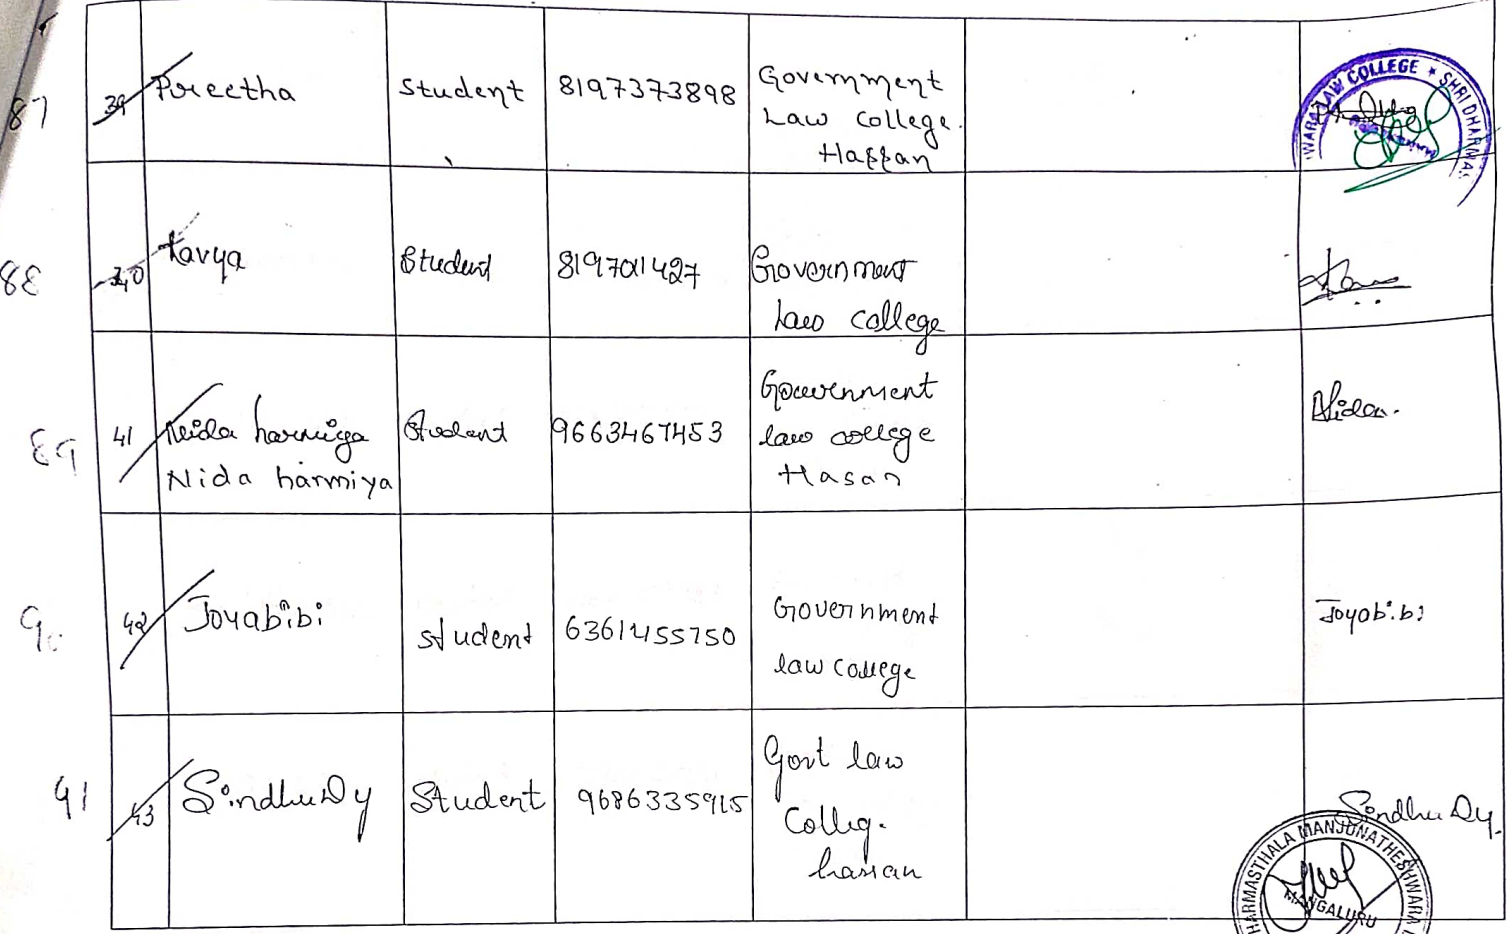 87 39 Preetha Student 8197373898 Government
Law College.
Hassan
WARA LAW COLLEGE * SHRI DHARMAS
88 40 Kavya Student 8197011427 Government
Law College
89 41 Neida harmiya Student 9663467453 Government
law college
Nida harmiya Hasan
Nida.
90 42 Joyabibi student 6361455750 Government
law college
Joyabibi
91 43 Sindhu Dy Student 9686335915 Govt law
Colleg.
hassan
Sindhu Dy.
HARMASTHALA MANJUNATHESHWARA
MANGALURU